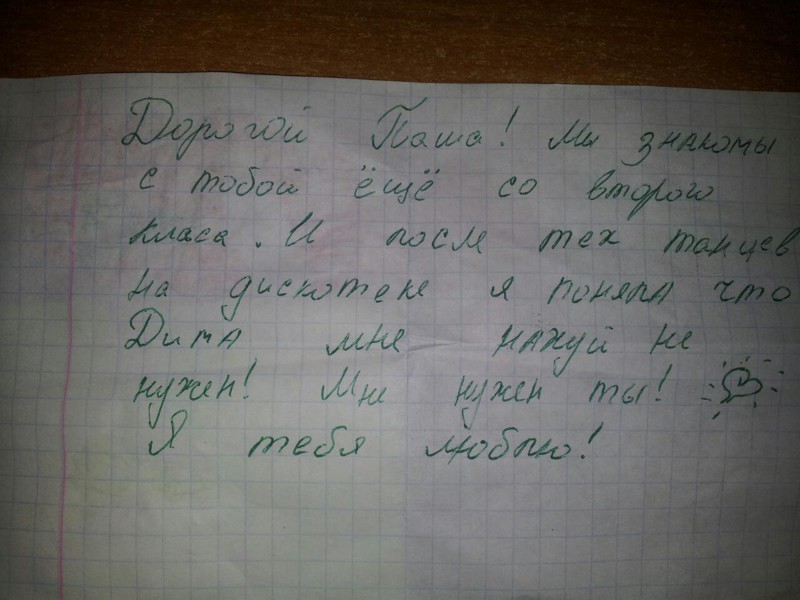 Дорогой Паша! Мы знакомы
с тобой ёщё со второго
класа. И после тех танцев
на дискотеке я поняла что
Дима мне нахуй не
нужен! Мне нужен ты!
Я тебя люблю!